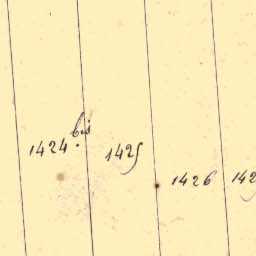 1424 bis
1425
1426